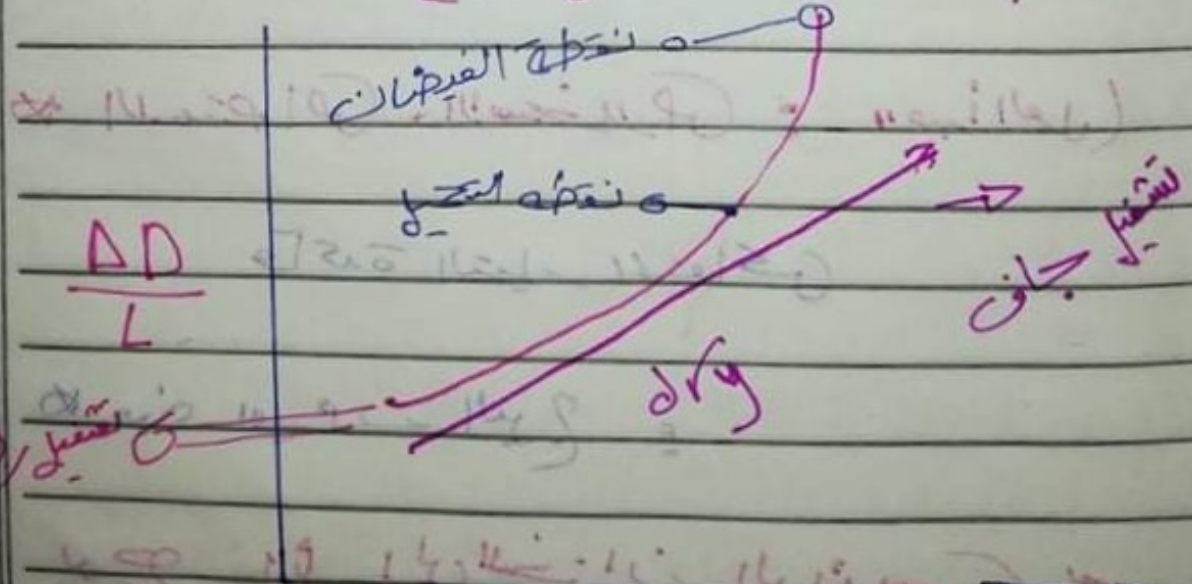 نقطة الفيضان
نقطة التحميل
ΔD
L
تشغيل
جاف
dry
تشغيل